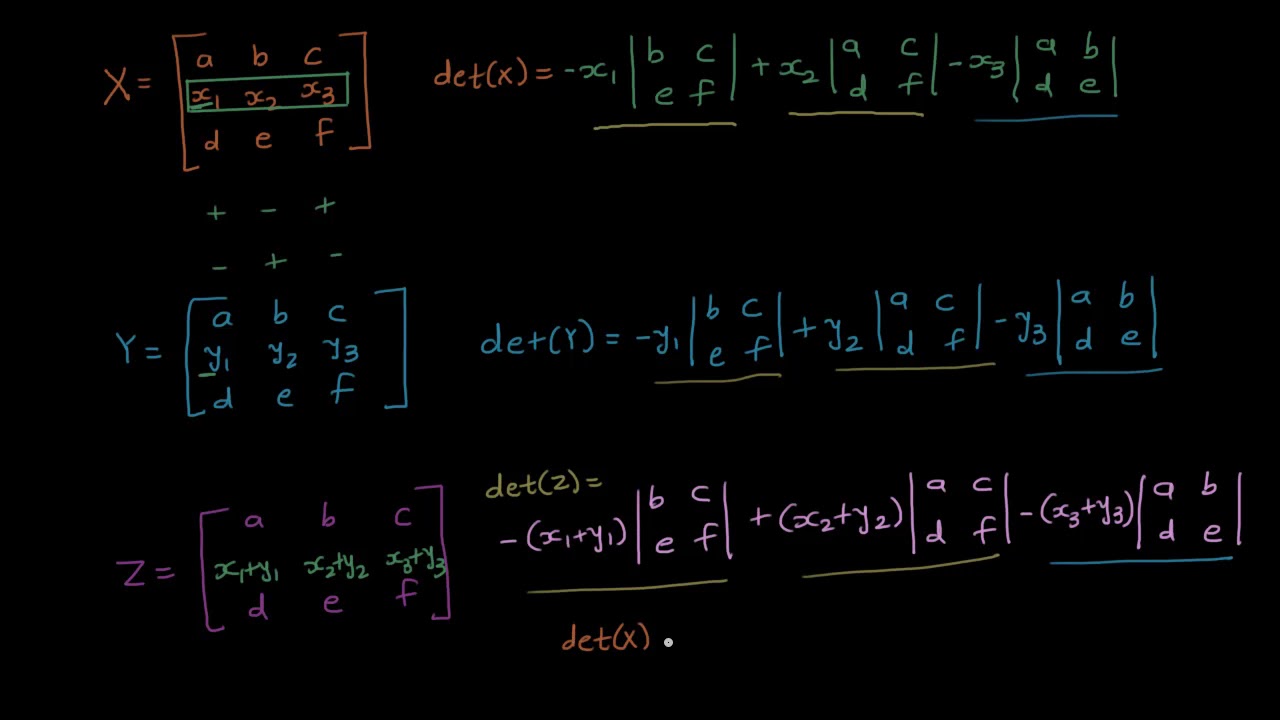 X = [ a b c
x₁ x₂ x₃
d e f ]
det(x) = -x₁ | b c | + x₂ | a c | - x₃ | a b |
| e f | | d f | | d e |
+ - +
- + -
Y = [ a b c
y₁ y₂ y₃
d e f ]
det(Y) = -y₁ | b c | + y₂ | a c | - y₃ | a b |
| e f | | d f | | d e |
Z = [ a b c
x₁+y₁ x₂+y₂ x₃+y₃
d e f ]
det(z) =
-(x₁+y₁) | b c | + (x₂+y₂) | a c | - (x₃+y₃) | a b |
| e f | | d f | | d e |
det(x)